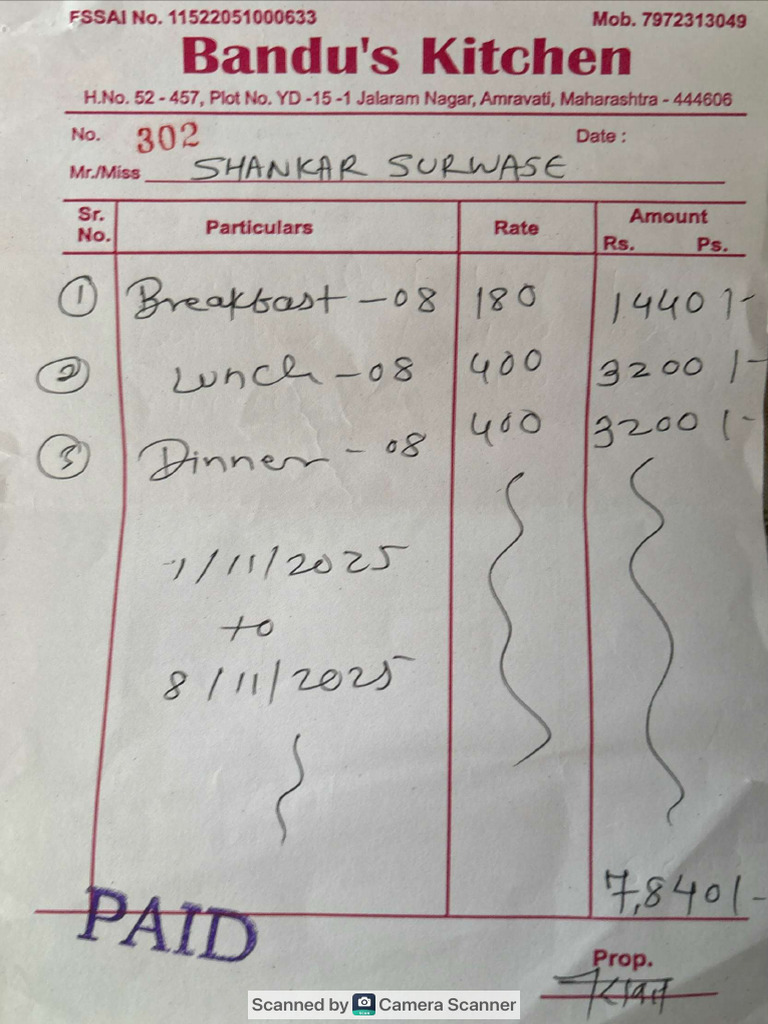 FSSAI No. 11522051000633 Mob. 7972313049
Bandu's Kitchen
H.No. 52 - 457, Plot No. YD -15 -1 Jalaram Nagar, Amravati, Maharashtra - 444606
No. 302 Date :
Mr./Miss SHANKAR SURWASE
Sr. No. Particulars Rate Amount Rs. Ps.
① Breakfast - 08 180 1440 /-
② Lunch - 08 400 3200 /-
③ Dinner - 08 400 3200 /-
1/11/2025
to
8/11/2025
7,840/-
PAID
Prop.
Scanned by Camera Scanner